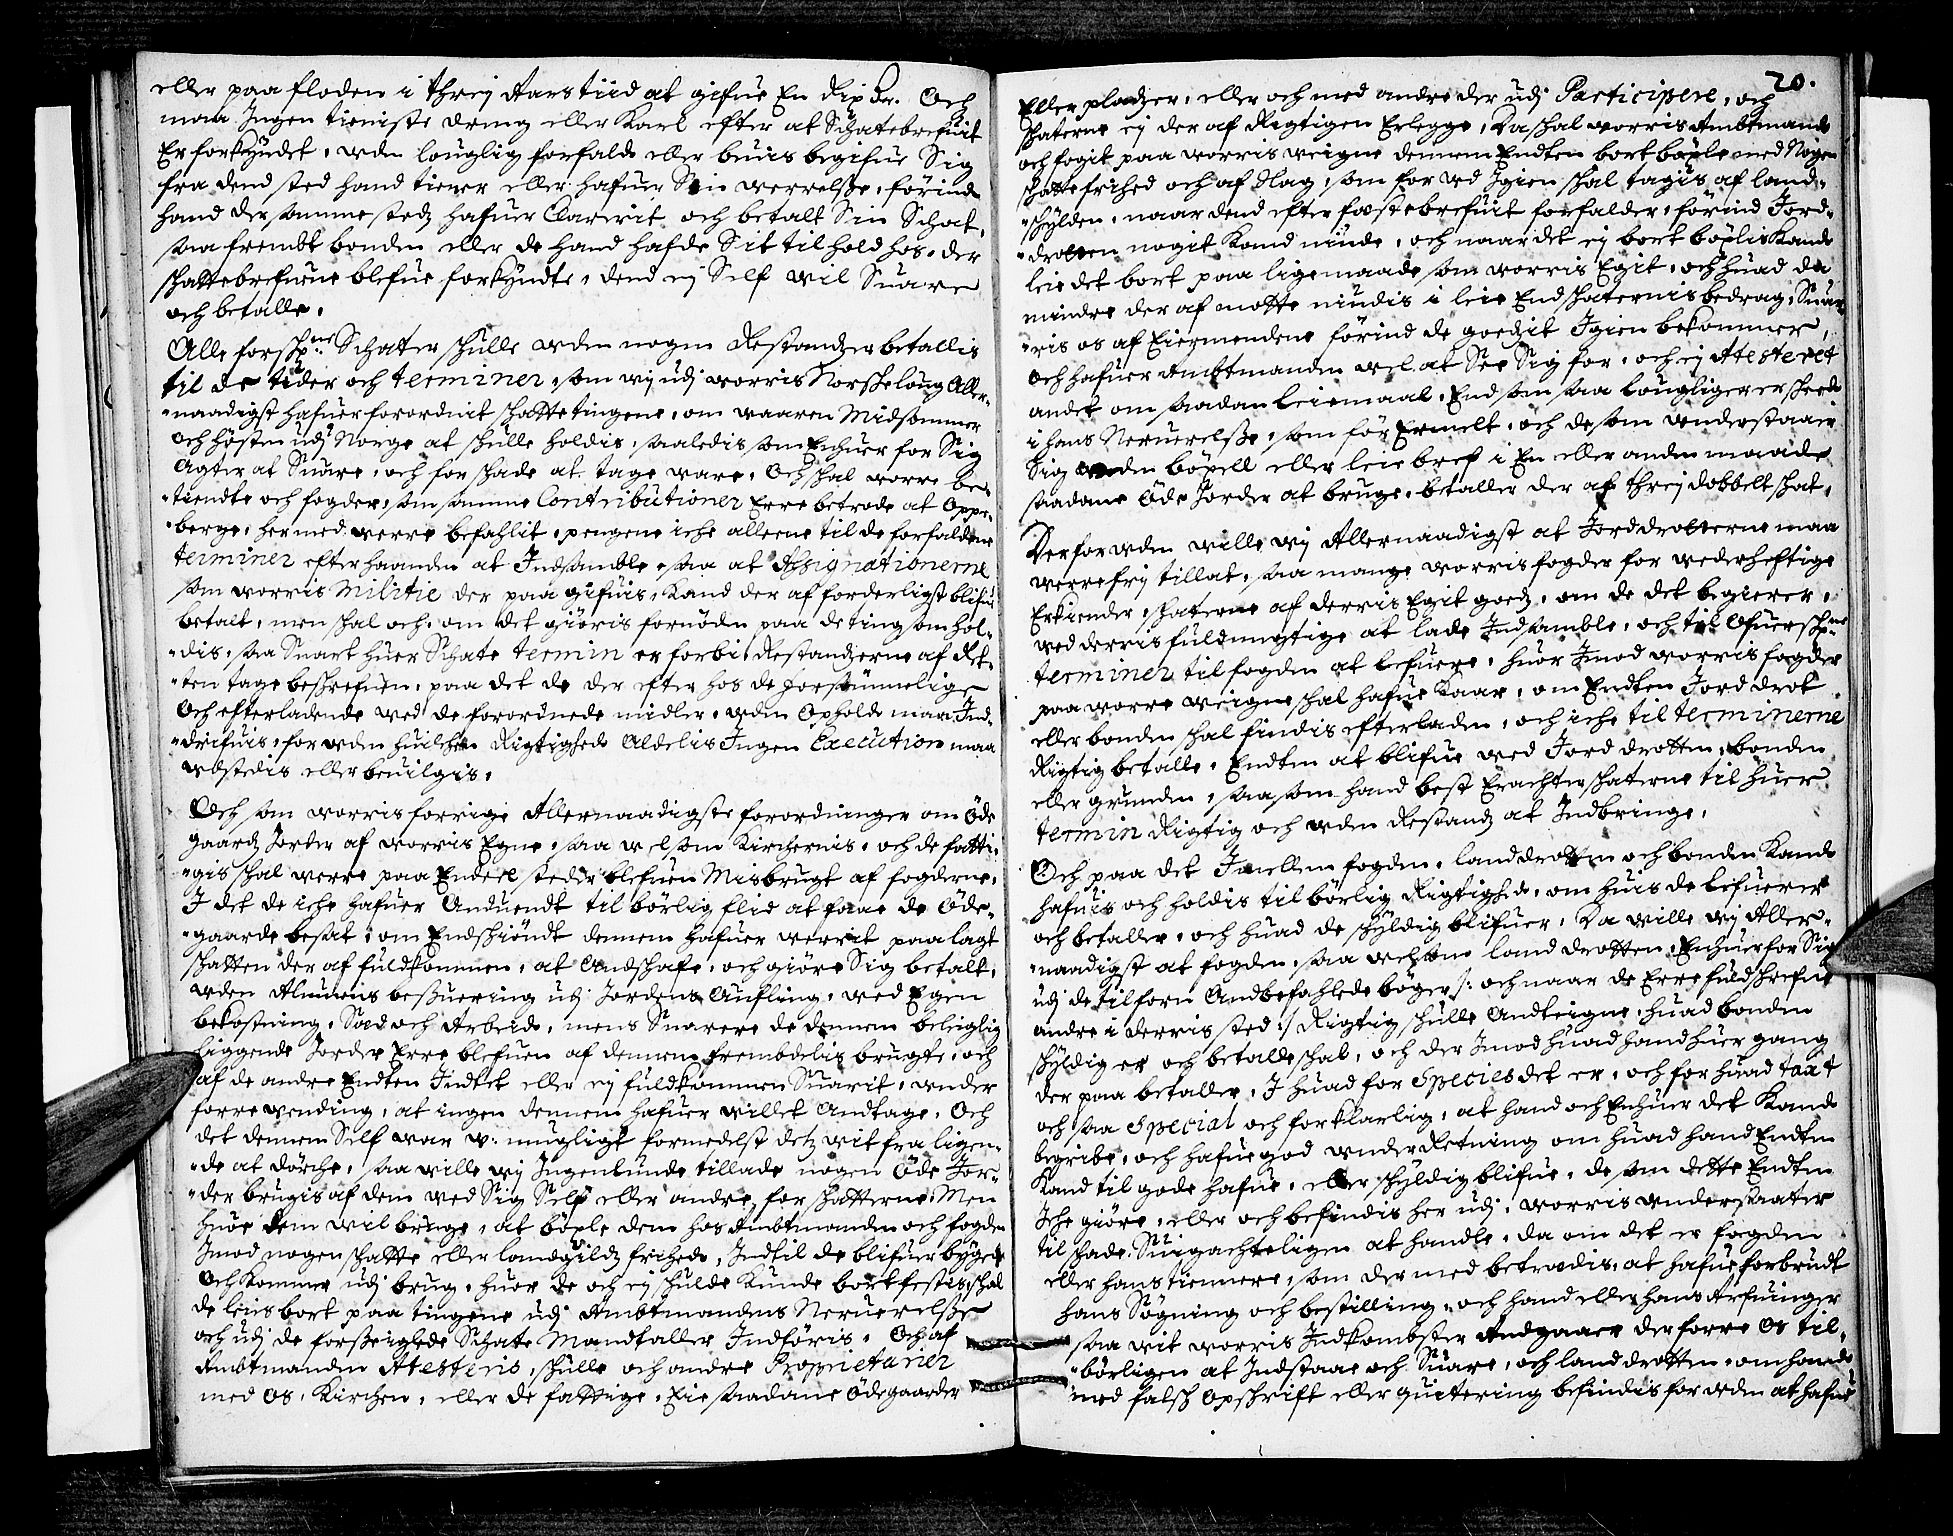 eller paa floden i threj Aars tiid at gifue En Rix dr. Och
maa Ingen tieniste dreng eller Karl efter at Schatebrefuit
Er forkyndet, uden louglig forfald eller beuis begifue Sig
fra dend sted hand tiener eller hafuer Sin werrelsse, førind
hand der samme stedz hafuer Clarerit och betalt Sin Schat,
saa frembt bonden eller de hand hafde Sit tilhold hos, der
schattebrefuene blefue forkyndte, dend ej Self wil Suare
och betalle.
Alle forschne Schater schulle uden nogen Restandzer betallis
til de tider och terminer, som wij udj worris Norske loug Aller-
-naadigst hafuer forordnit schattetingene, om waaren Midsommer
och høsten udj Norge at schulle holdis, saaledis som Enhuer for Sig
Agter at Suare, och for schade at tage ware. Och schal worre be-
-tiendte och fogder, som samme Contributioner Erre betrode at Oppe-
-berge, hermed werre befahlit, pengene iche alleene til de forfaldne
terminer efter haanden at Indsamble, saa at Assignationerne
som worris Militie der paa gifuis, Kand der af forderligst blifue
betalt, men schal och, om det giøris fornøden paa de ting som hol-
-dis, saa Snart huer Schate termin er forbi, Restandzerne af Ret-
-ten tage beschrefuen, paa det de der efter hos de forsømmelige
Och efterladende wed de forordnede midler, uden Ophold maa Ind-
-drifuis, foruden huilchen Rigtighed Aldelis Ingen Execution maa
udstedis eller beuilgis.
Och som worris forrige Allernaadigste forordninger om Øde
gaardz Jorder af worris Egne, saa welsom Kirchernis, och de fatti-
-gis schal werre paa Endeel steder blefuen Misbrugt af fogderne,
I det de iche hafuer Anduendt tilbørlig flid at faae de Øde-
-gaarde besat, om Endschiøndt dennem hafuer werrit paalagt
schatten der af fuldkommen, at Andschafe, och giøre Sig betalt,
uden Almuens beschuering udj Jordens Aufling, wed Egen
bekostning, Sæd och Arbeide, mens Snarere de dennem beleiglig
liggende Jorder Erre blefuen af dennem frembdelis brugte, och
af de andre Endten Indtet eller ej fuldkommen Suarit, under
forrewending, at ingen dennem hafuer willet Andtage. Och
det dennem Self war u-mugligt formedelst detz wit fra ligen-
-de at dørche, saa wille wij Ingenlunde tillade nogen Øde Jor-
-der brugis af dem wed Sig Self eller andre, for schatterne, Men
huor dem wil bruge, at bøxle dem hos Ambtmanden och fogden
Imod nogen schatte eller landgildz friheds, Indtil de blifuer bygede
Och kommer udj brug, huor de och ej schulde Kunde bortfestis, schal
de leies bort paa tingene udj Ambtmandens Neruerelsse
och udj de forseiglede Schate Mandtaller Indføris, Och af
Ambtmanden Atesteris, schulle och andre Proprietarier
med Os, Kirchen, eller de fattige, Eie saadane ødegaarder
20.
Eller pladzer, eller och med andre der udj Participere, och
schaterne ej der af Rigtigen Erlegge, Da schal worris Ambtmand
och fogit paa worris weigne dennem Endten bort bøxle med Nogen
schattefrihed och af Slag, som for wed Igien schal tagis af land-
-schylden, naar dend efter fæstebrefuit forfalder, førind Jord-
-drotten nogit Kand niude, och naar det ej bort bøxlis Kand
leie det bort paa ligemaade som worris Egit, och huad da
mindre der af motte niudis i leie End schaternis bedrag, Suar-
-ris os af Eiermendene førind de goedzit Igien bekommer,
Och hafuer Ambtmanden wel at See Sig for, och ej Atesteret
andet om saadan leiemaal, End som saa lougligen er scheed
i hans Neruerelsse, som før Ermelt, och de som understaaer
Sig uden bøxell eller leiebref i En eller anden maade
saadane Øde Jorder at bruge, betaller der af threj dobbelt schat.
Der foruden wille wij Allernaadigst at Jorddrotterne maa
werre frj tillat, saa mange worris fogder for wederheftige
Erkiender, schaterne af derris Egit goedz, om de det begierer,
wed derris fuldmegtige at lade Indsamble, och til Ofuerschne
terminer til fogden at lefuere, huor Imod worris fogder
paa worre weigne schal hafue Kaar, om Endten Jorddrot
eller bonden schal findis efterladen, och iche til terminerne
Rigtig betalle, Endten at blifue wed Jorddrotten, bonden
eller grunden, saa som hand best Erachter schaterne til huer
termin Rigtig och uden Restandz at Indbringe.
Och paa det Imellem fogden, landdrotten och bonden Kand
hafuis och holdis tilbørlig Rigtighed, om huis de lefuerer
och betaller, och huad de schyldig blifuer, Da wille wij Aller-
-naadigst at fogden, saa welsom landdrotten, Enhuer for Sig
udj de tilforn Andbefahlede bøger /: och naar de Erre fuldschrefne
andre i derris sted :/ Rigtig schulle Andteigne, huad bonden
schyldig er och betalle schal, och der Imod huad hand huer gang
der paa betaller, I huad for Species det er, och for huad taxt
och saa Special och forklarlig, at hand och Enhuer det Kand
begribe, och hafue god underRetning om huad hand Endten
Kand til gode hafue, eller schyldig blifue, de som dette Endten
Iche giøre, eller och befindis her udj, worris understaater
til schade Suigachteligen at handle, da om det er fogden
eller hans tiennere, som der med betroedis, at hafue forbrudt
hans Søgning och bestilling, och hand eller hans Arfuinger
saa wit worris Indkombster Andgaaer derforre Os til-
-børligen at Indstaae och Suare, och landdrotten, om hand
med falsch Opschrift eller quitering befindis foruden at hafue